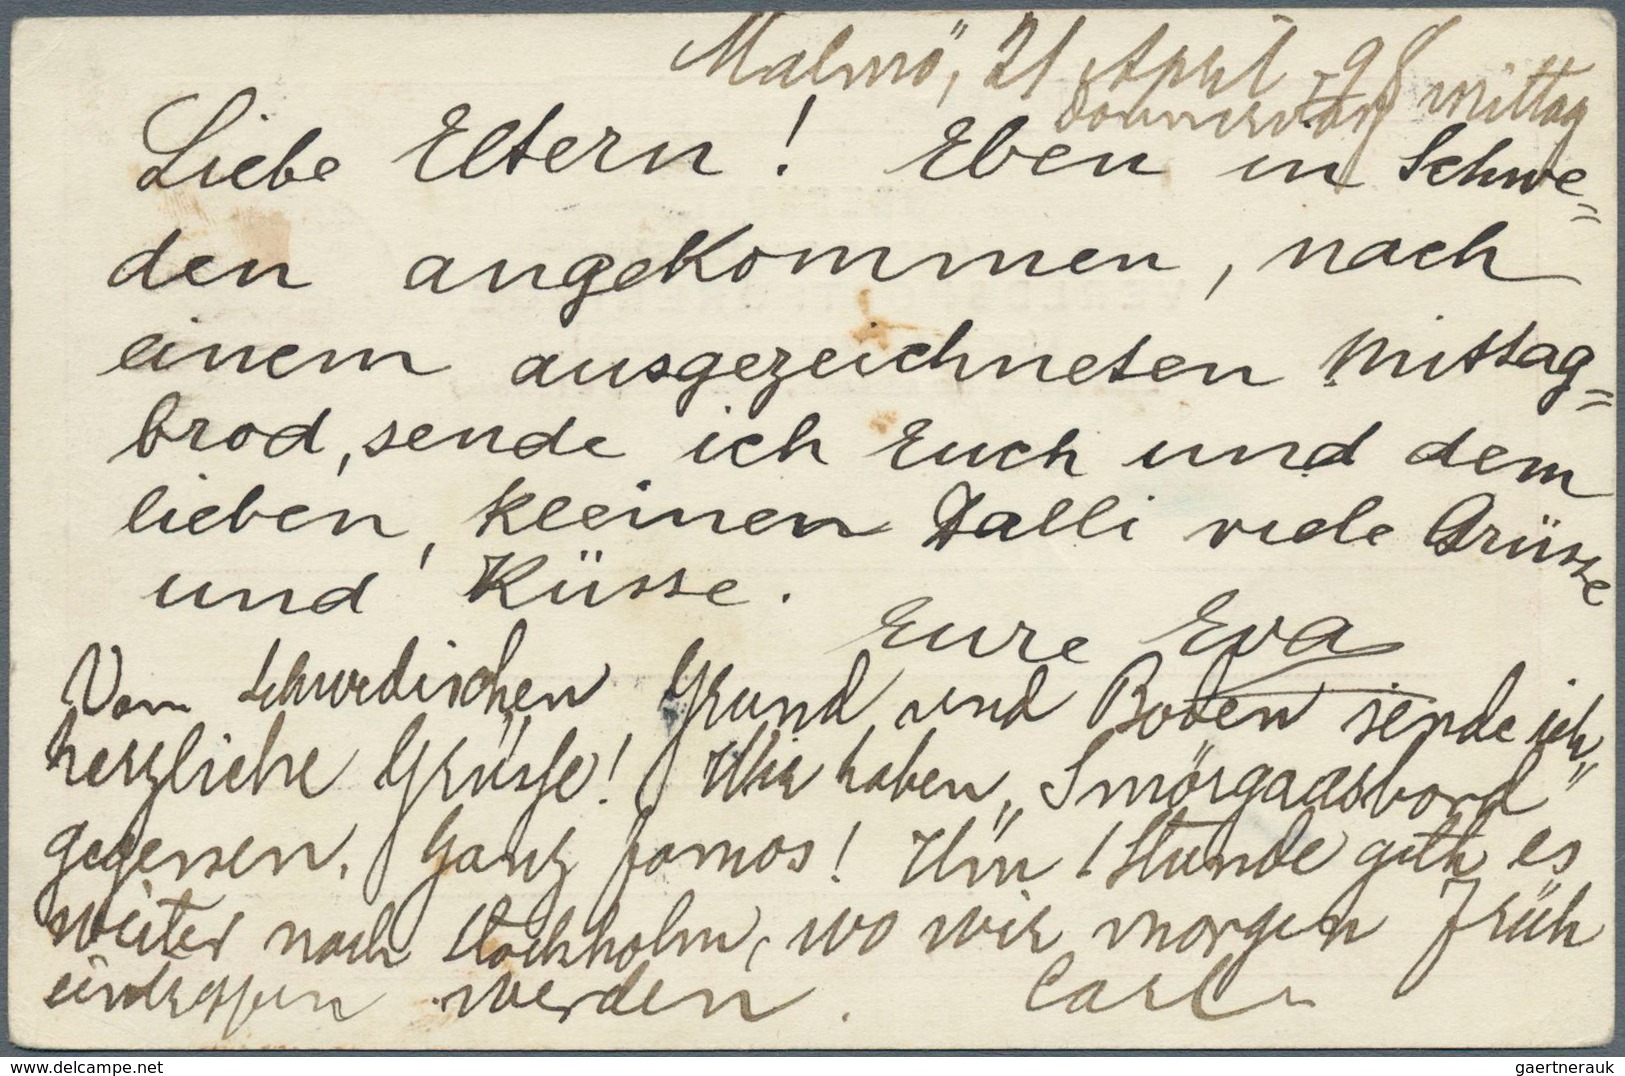 Malmö, 21 April 98 Mittag
Donnerstag
Liebe Eltern! Eben in Schwe=
den angekommen, nach
einem ausgezeichneten Mittag=
brod, sende ich Euch und dem
lieben, kleinen Dalli viele Grüsse
und Küsse.
Eure Eva
Vom schwedischen Grund und Boden sende ich
herzliche Grüsse! Wir haben „Smörgaasbord“
gegessen. Ganz famos! Um 1 Stunde geht es
weiter nach Stockholm, wo wir morgen Früh
eintreffen werden. Carl
delcampe.net
gaertnerauk